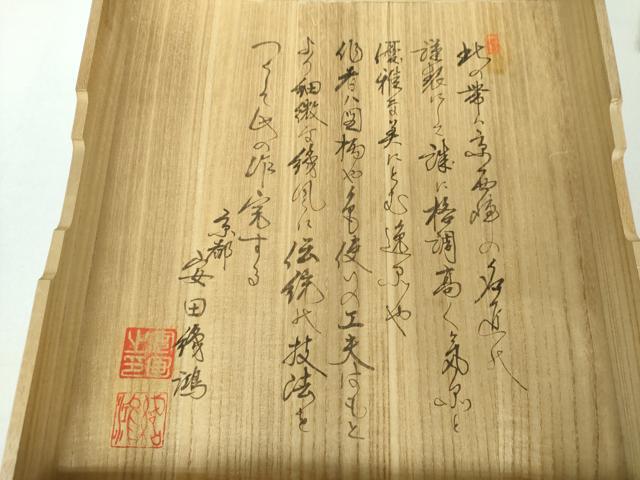 此の帯は京西陣の名匠の
謹製にて誠に格調高く気品と
優雅な美にとむ逸品や
作者は図柄や色使いの工夫はもと
より細微な織風に伝統の技法を
つくして此の作完する
京都
安田鴻